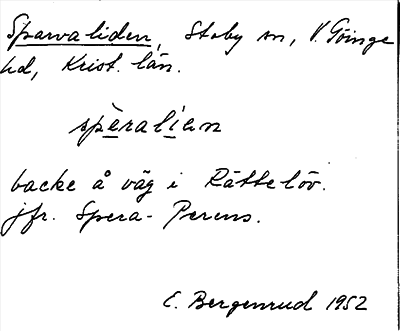 Sparvaliden, Stoby sn, V. Göinge
hd, Krist. län.
spèralian
backe å väg i Rättelöv.
jfr. Spera-Perens.
E. Bergenrud 1952